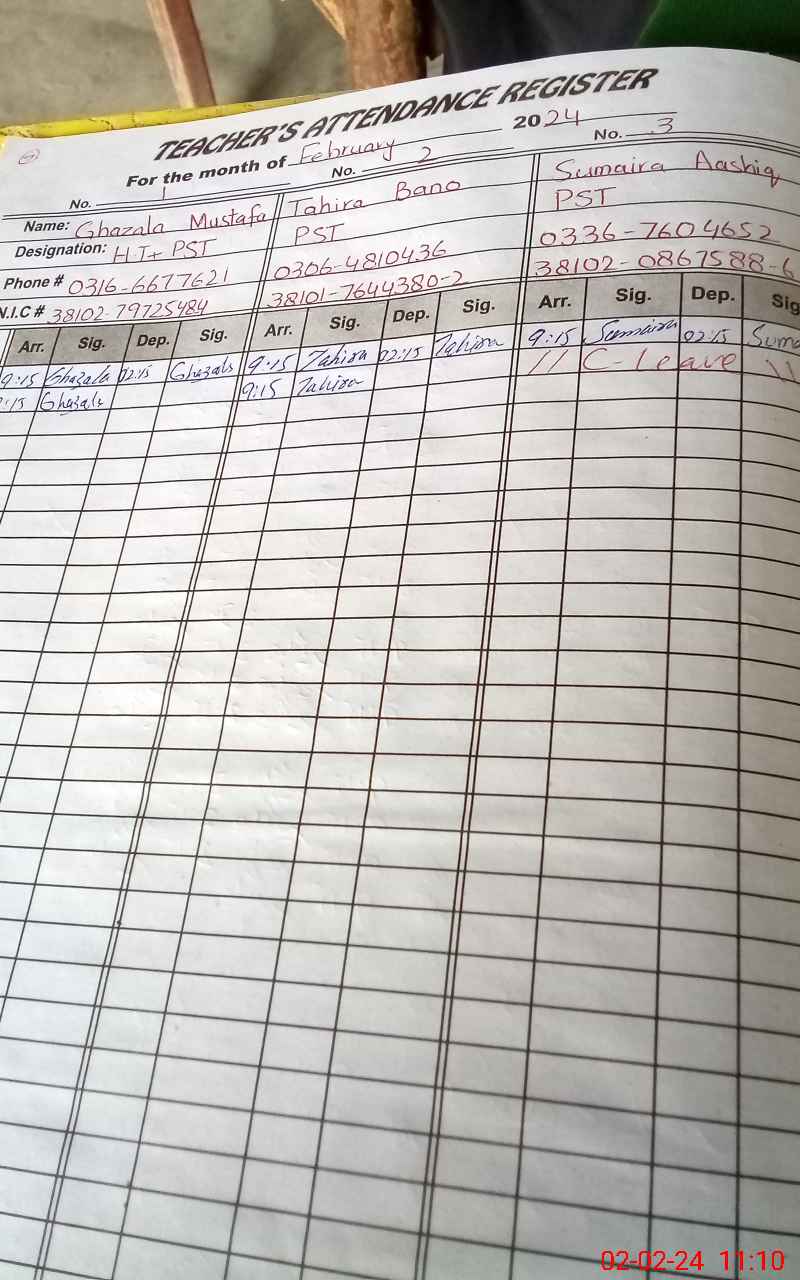 TEACHER'S ATTENDANCE REGISTER
For the month of February 2024
No. 1 No. 2 No. 3
Name: Ghazala Mustafa Tahira Bano Sumaira Aashiq
Designation: H.T+ PST PST PST
Phone # 0316-6677621 0306-4810436 0336-7604652
N.I.C # 38102-79725484 38101-7644380-2 38102-0867588-6
Arr. Sig. Dep. Sig. Arr. Sig. Dep. Sig. Arr. Sig. Dep. Sig
9:15 Ghazala 02:15 Ghazala 9:15 Tahira 02:15 Tahira 9:15 Sumaira 02:15 Suma
9:15 Ghazala 9:15 Tahira // C-leave \\
02-02-24 11:10